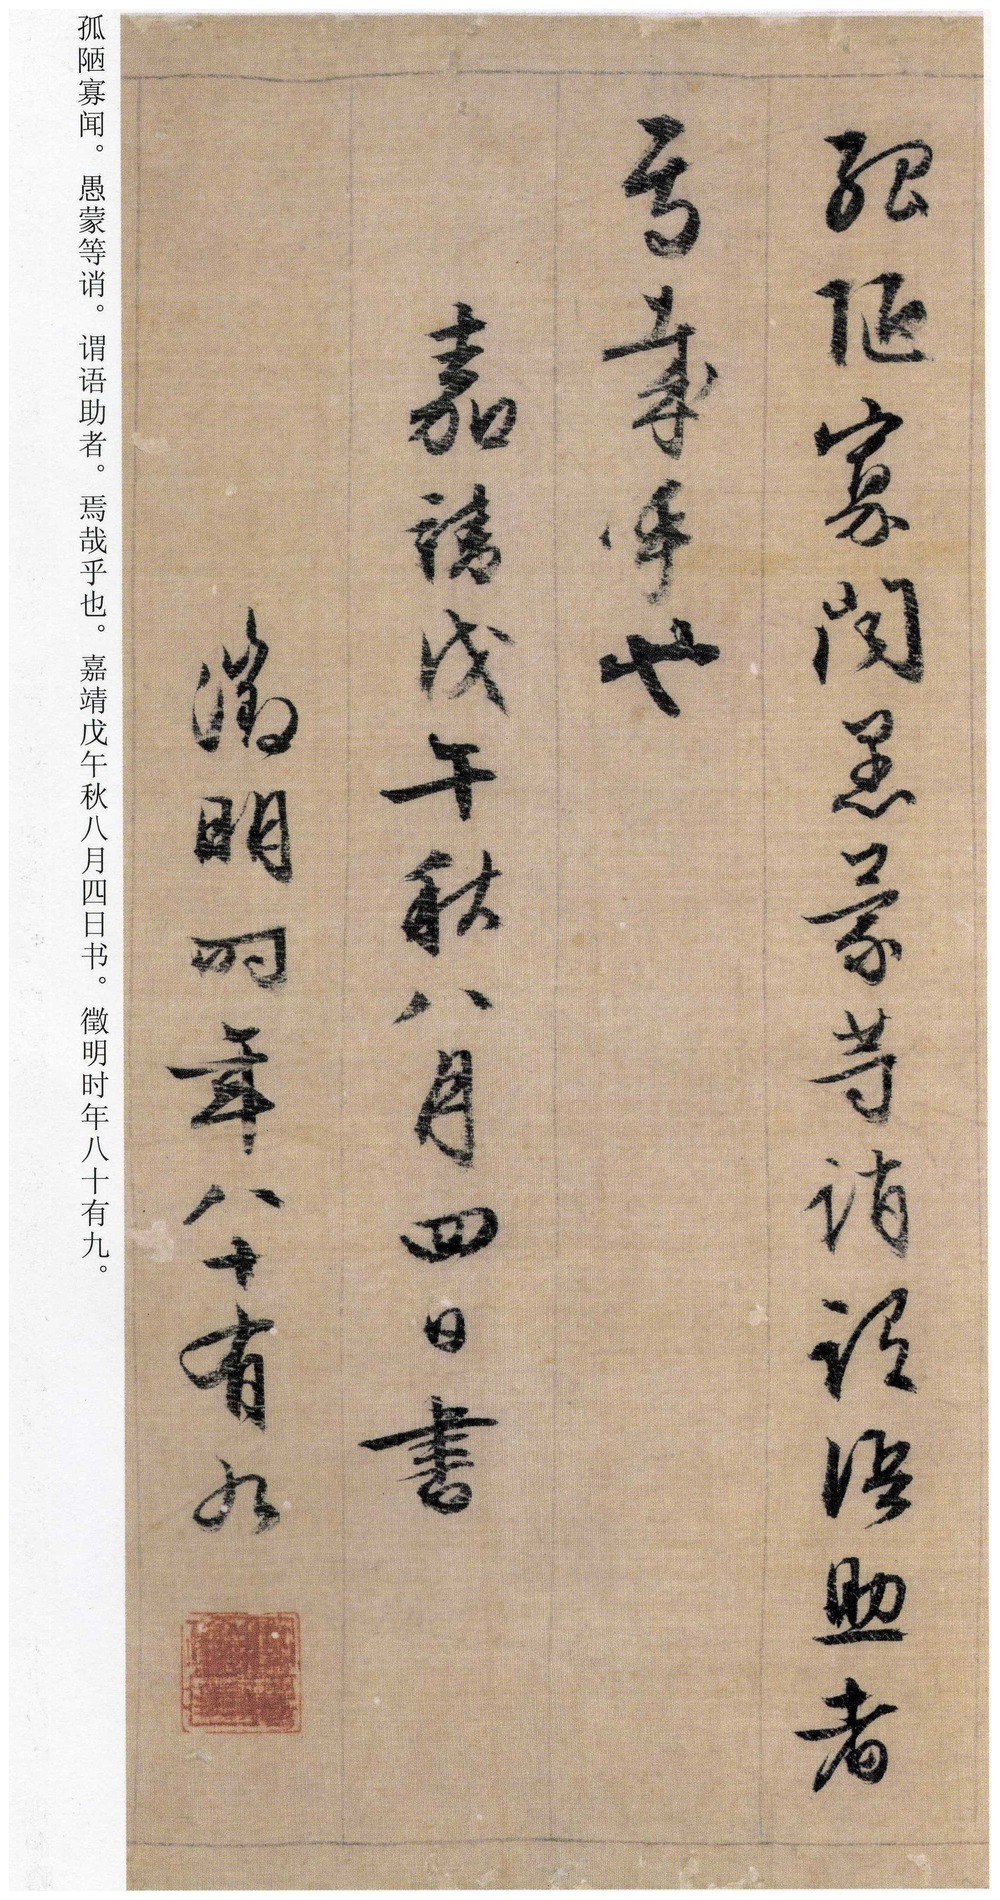 孤陋寡闻愚蒙等诮谓语助者
焉哉乎也
嘉靖戊午秋八月四日書
徵明时年八十有九
孤陋寡闻。愚蒙等诮。谓语助者。焉哉乎也。嘉靖戊午秋八月四日书。徵明时年八十有九。